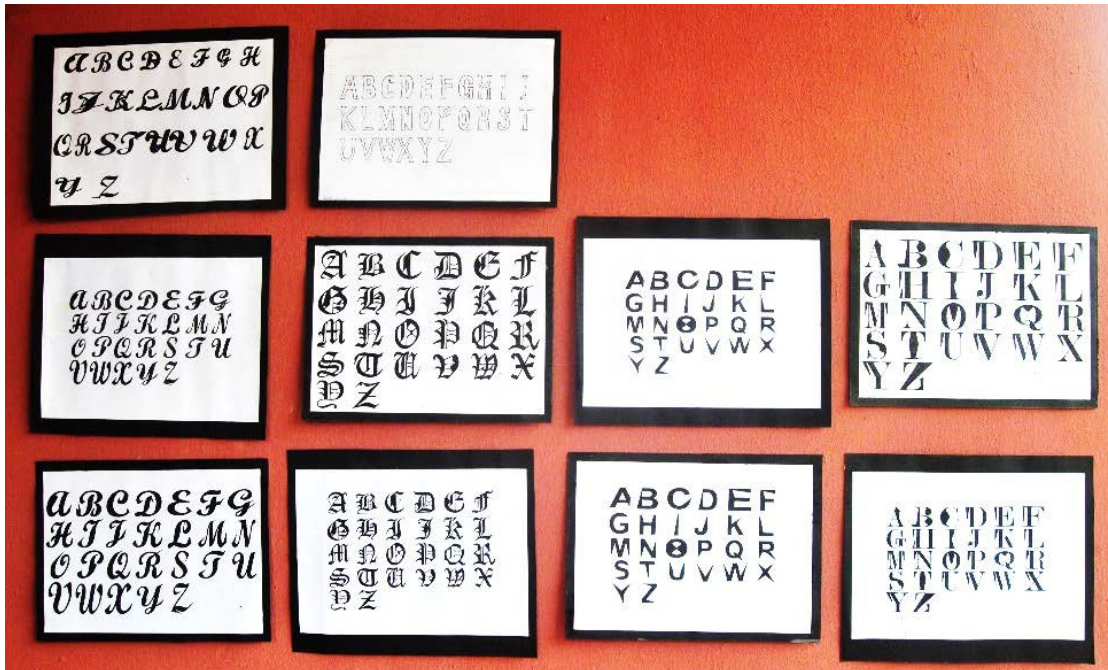 A B C D E F G H
I J K L M N O P
Q R S T U V W X
Y Z
A B C D E F G H I J
K L M N O P Q R S T
U V W X Y Z
A B C D E F G
H I J K L M N
O P Q R S T U
V W X Y Z
A B C D E F
G H I J K L
M N O P Q R
S T U V W X
Y Z
A B C D E F
G H I J K L
M N O P Q R
S T U V W X
Y Z
A B C D E F
G H I J K L
M N O P Q R
S T U V W X
Y Z
A B C D E F G
H I J K L M N
O P Q R S T U
V W X Y Z
A B C D E F
G H I J K L
M N O P Q R
S T U V W X
Y Z
A B C D E F
G H I J K L
M N O P Q R
S T U V W X
Y Z
A B C D E F
G H I J K L
M N O P Q R
S T U V W X
Y Z